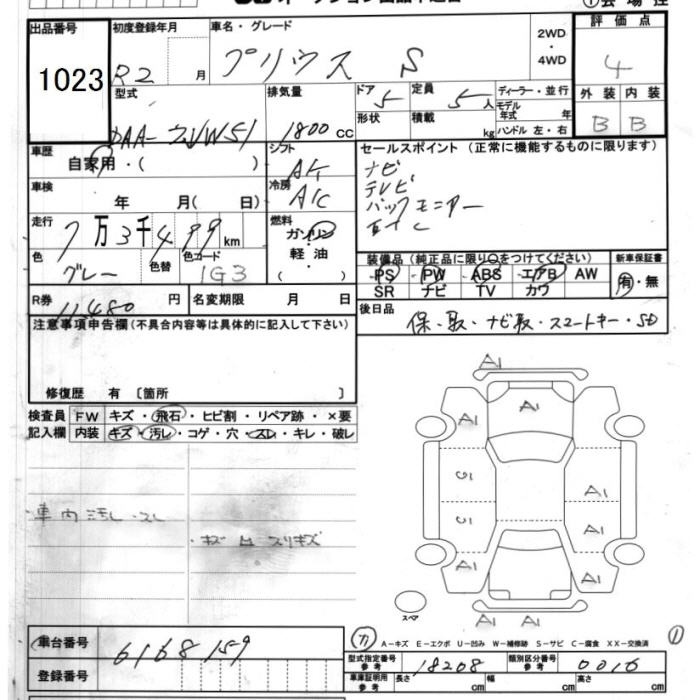 出品番号 1023
初度登録年月 R2 月
車名・グレード プリウス S
2WD・4WD
評価点 4
外装 内装
B B
型式 DAA-ZVW51
排気量 1800 CC
ドア 5
定員 5 人
形状
積載 kg
ディーラー・並行
モデル年式 年
ハンドル 左・右
車歴 自家用・( )
シフト AT
冷房 A/C
セールスポイント (正常に機能するものに限ります)
ナビ
テレビ
バックモニター
車検 年 月 ( 日)
走行 7万3千499km
燃料 ガソリン・軽油・( )
色 グレー
色替
色コード 1G3
装備品 (純正品に限り○をつけてください)
PS PW ABS エアB AW
SR ナビ TV カワ
新車保証書
有・無
R券 11480 円
名変期限 月 日
後日品 保・取・ナビ取・スマートキー・SD
注意事項申告欄 (不具合内容等は具体的に記入して下さい)
修復歴 有 〔箇所 〕
検査員記入欄
FW キズ・飛石・ヒビ割・リペア跡・×要
内装 キズ・汚レ・コゲ・穴・スレ・キレ・破レ
・車内汚レ・スレ
・キズ 凹 スリキズ
A1
A1
A1 A1
A1
A1
A1 A1
A1 A1
スペア
車台番号 6168159
カ
A-キズ E-エクボ U-凹み W-補修跡 S-サビ C-腐食 XX-交換済
①
登録番号
型式指定番号 参考 18208
類別区分番号 参考 0016
車庫証明用 参考 長さ cm 幅 cm 高さ cm